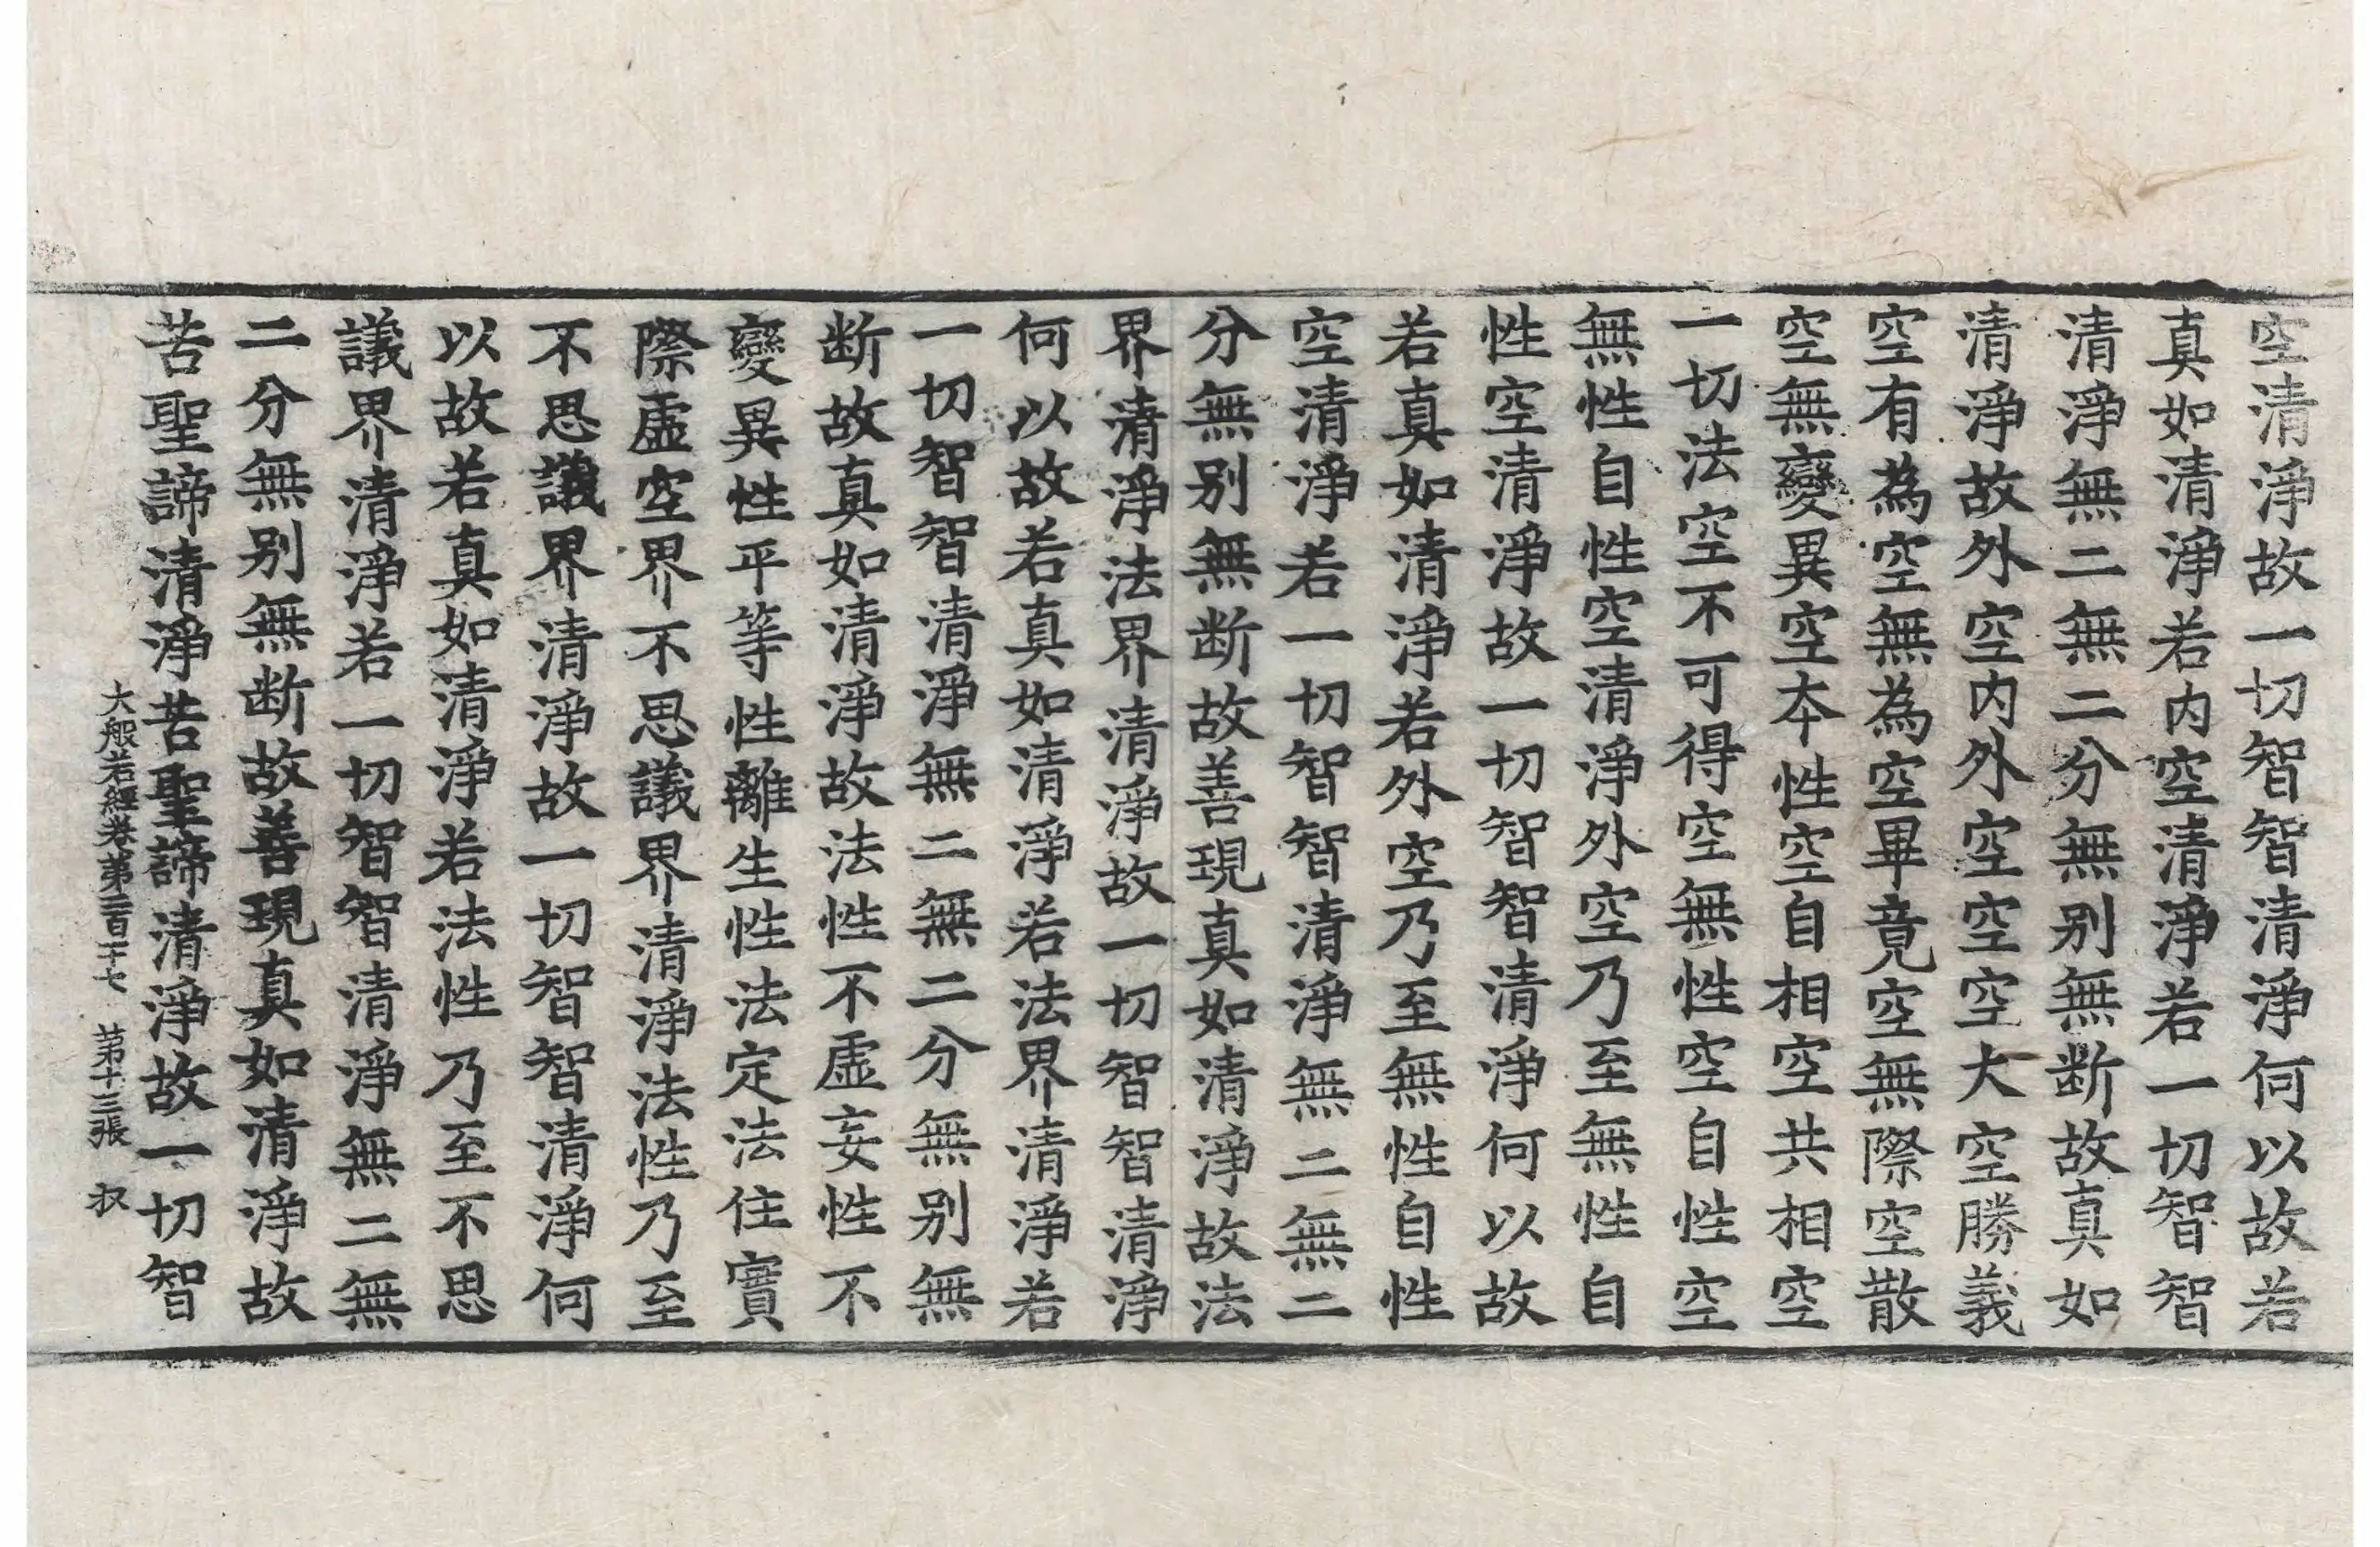 空清淨故一切智智清淨何以故若
真如清淨若内空清淨若一切智智
清淨無二無二分無别無断故真如
清淨故外空内外空空空大空勝義
空有為空無為空畢竟空無際空散
空無變異空本性空自相空共相空
一切法空不可得空無性空自性空
無性自性空清淨外空乃至無性自
性空清淨故一切智智清淨何以故
若真如清淨若外空乃至無性自性
空清淨若一切智智清淨無二無二
分無别無断故善現真如清淨故法
界清淨法界清淨故一切智智清淨
何以故若真如清淨若法界清淨若
一切智智清淨無二無二分無别無
断故真如清淨故法性不虚妄性不
變異性平等性離生性法定法住實
際虚空界不思議界清淨法性乃至
不思議界清淨故一切智智清淨何
以故若真如清淨若法性乃至不思
議界清淨若一切智智清淨無二無
二分無别無断故善現真如清淨故
苦聖諦清淨苦聖諦清淨故一切智
大般若經卷第二百十七 苐十三張